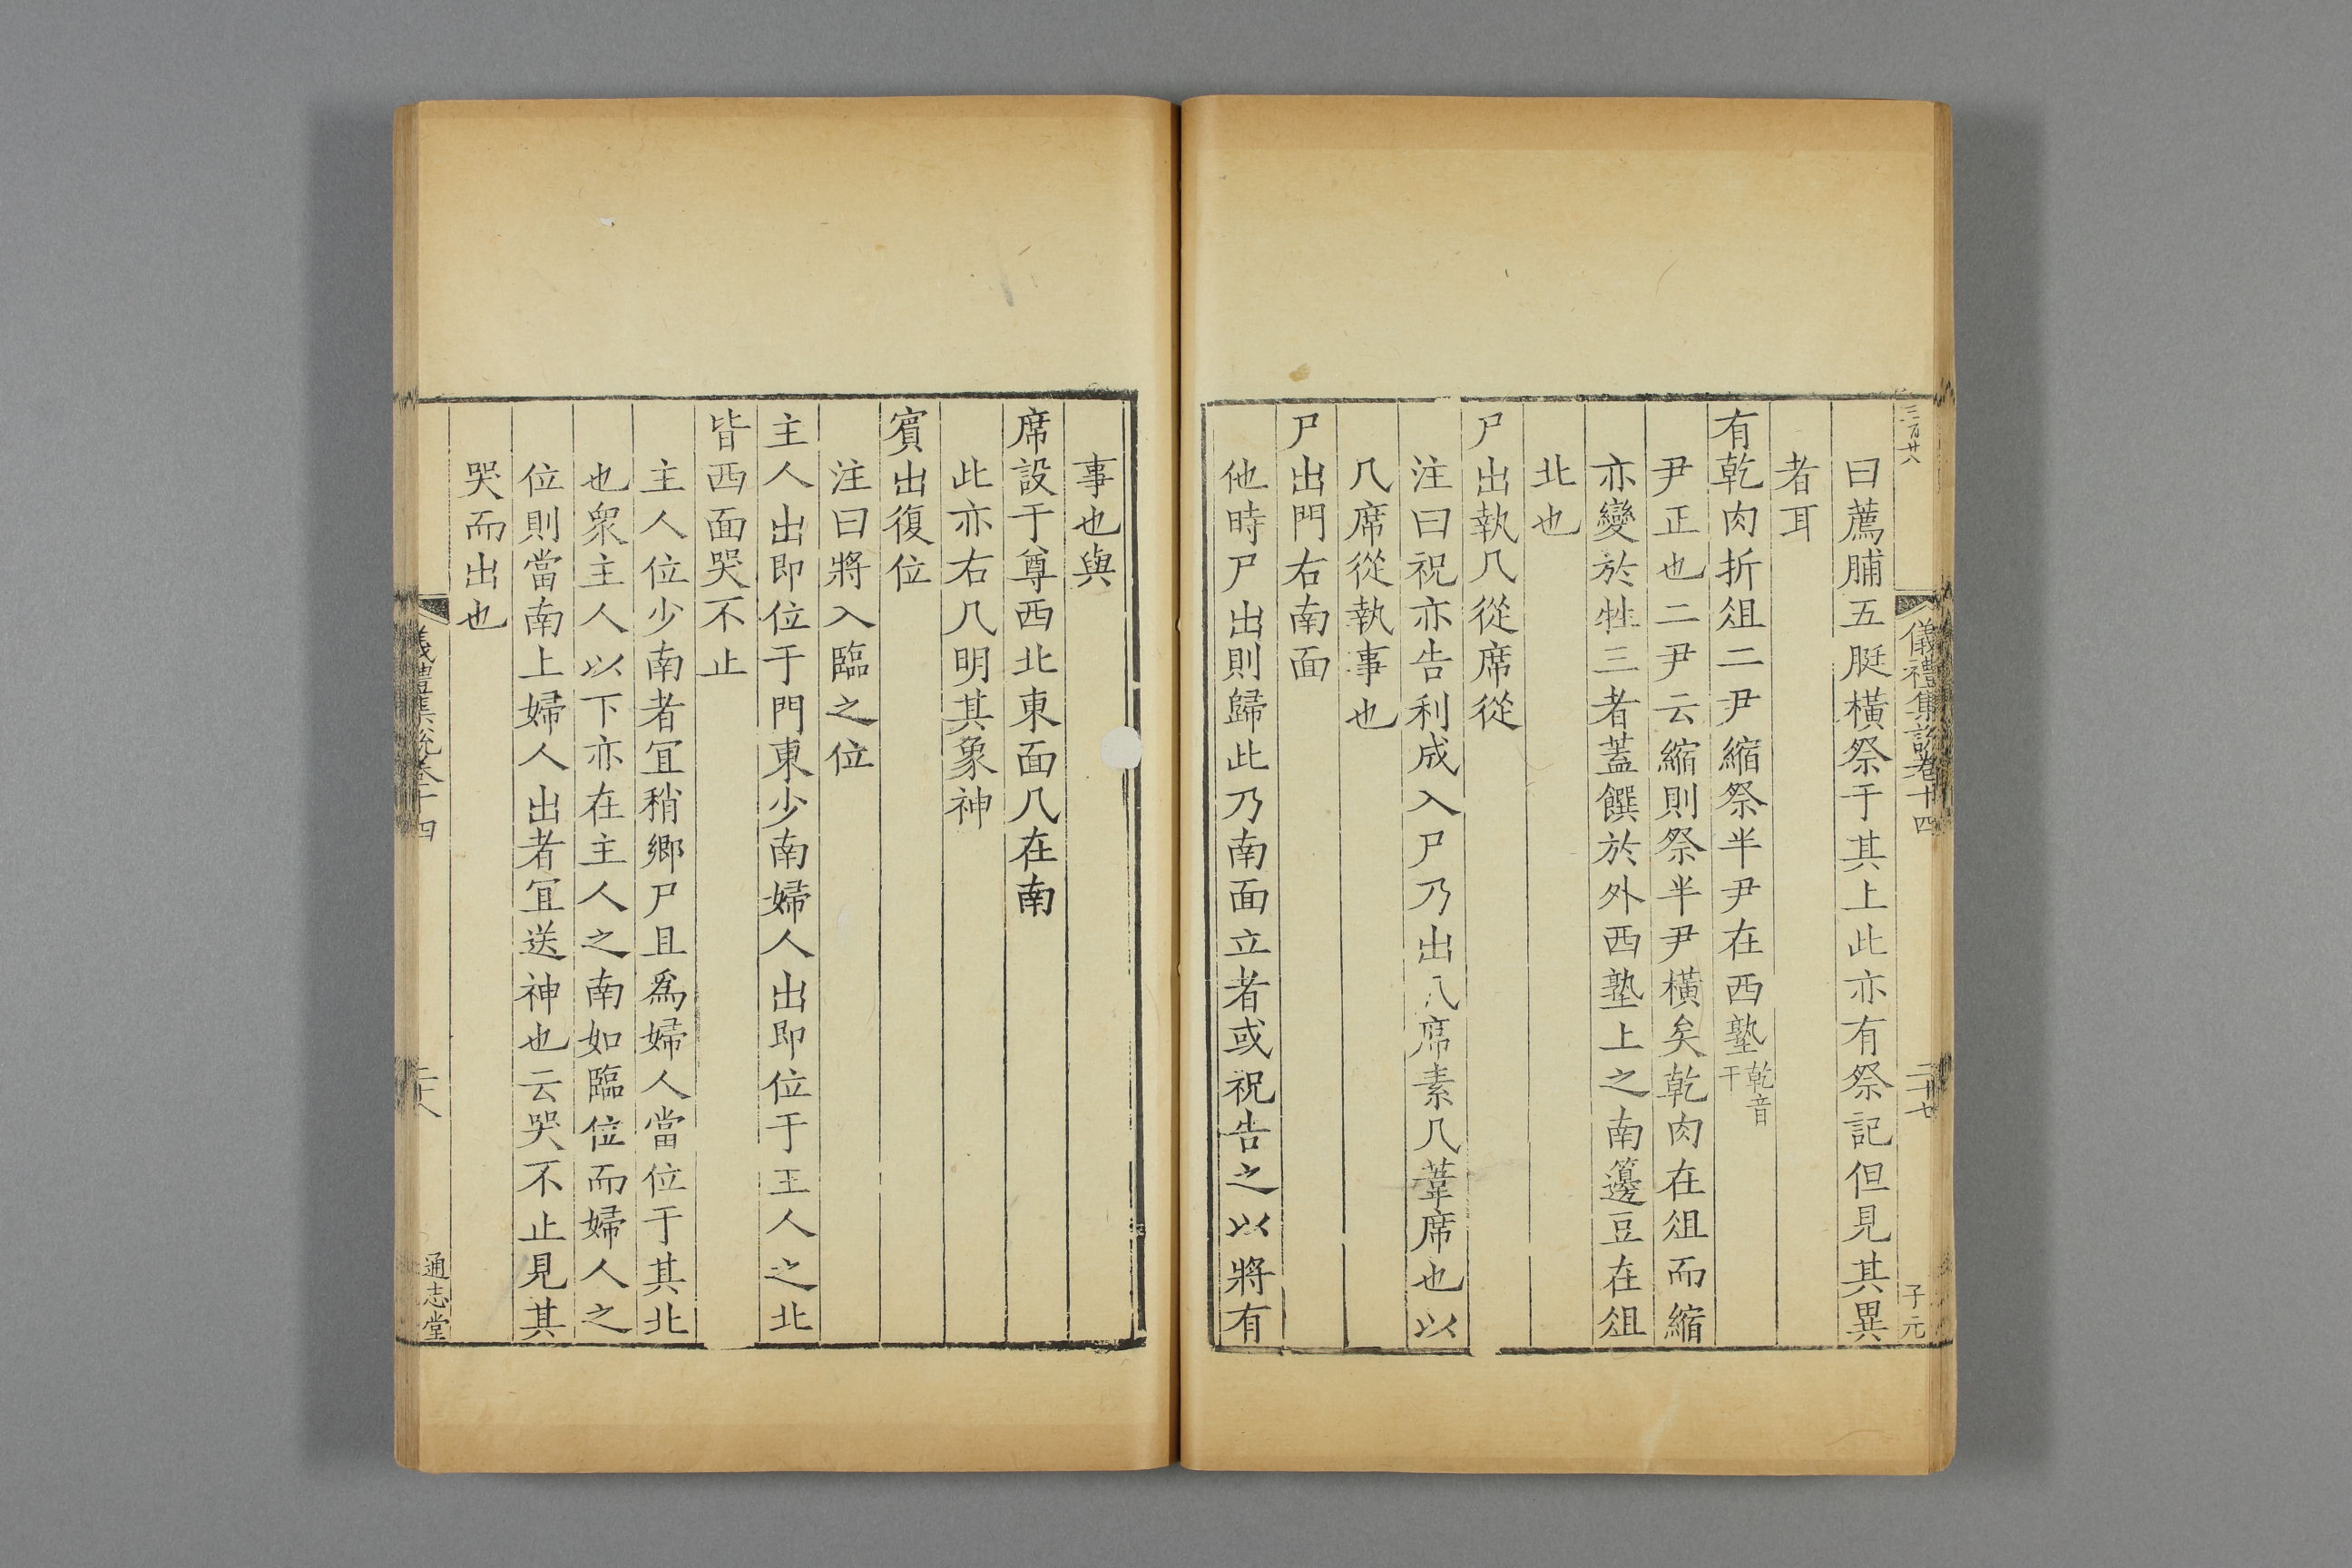 三百廿八
儀禮集說卷十四
二十七
子元
曰薦脯五脡橫祭于其上此亦有祭記但見其異
者耳
有乾肉折俎二尹縮祭半尹在西塾乾音干
尹正也二尹云縮則祭半尹橫矣乾肉在俎而縮
亦變於牲三者蓋饌於外西塾上之南籩豆在俎
北也
尸出執几從席從
注曰祝亦告利成入尸乃出几席素几葦席也以
几席從執事也
尸出門右南面
他時尸出則歸此乃南面立者或祝告之以將有
事也與
席設于尊西北東面几在南
此亦右几明其象神
賓出復位
注曰將入臨之位
主人出即位于門東少南婦人出即位于主人之北
皆西面哭不止
主人位少南者宜稍鄉尸且爲婦人當位于其北
也衆主人以下亦在主人之南如臨位而婦人之
位則當南上婦人出者宜送神也云哭不止見其
哭而出也
儀禮集說卷十四
二十八
通志堂